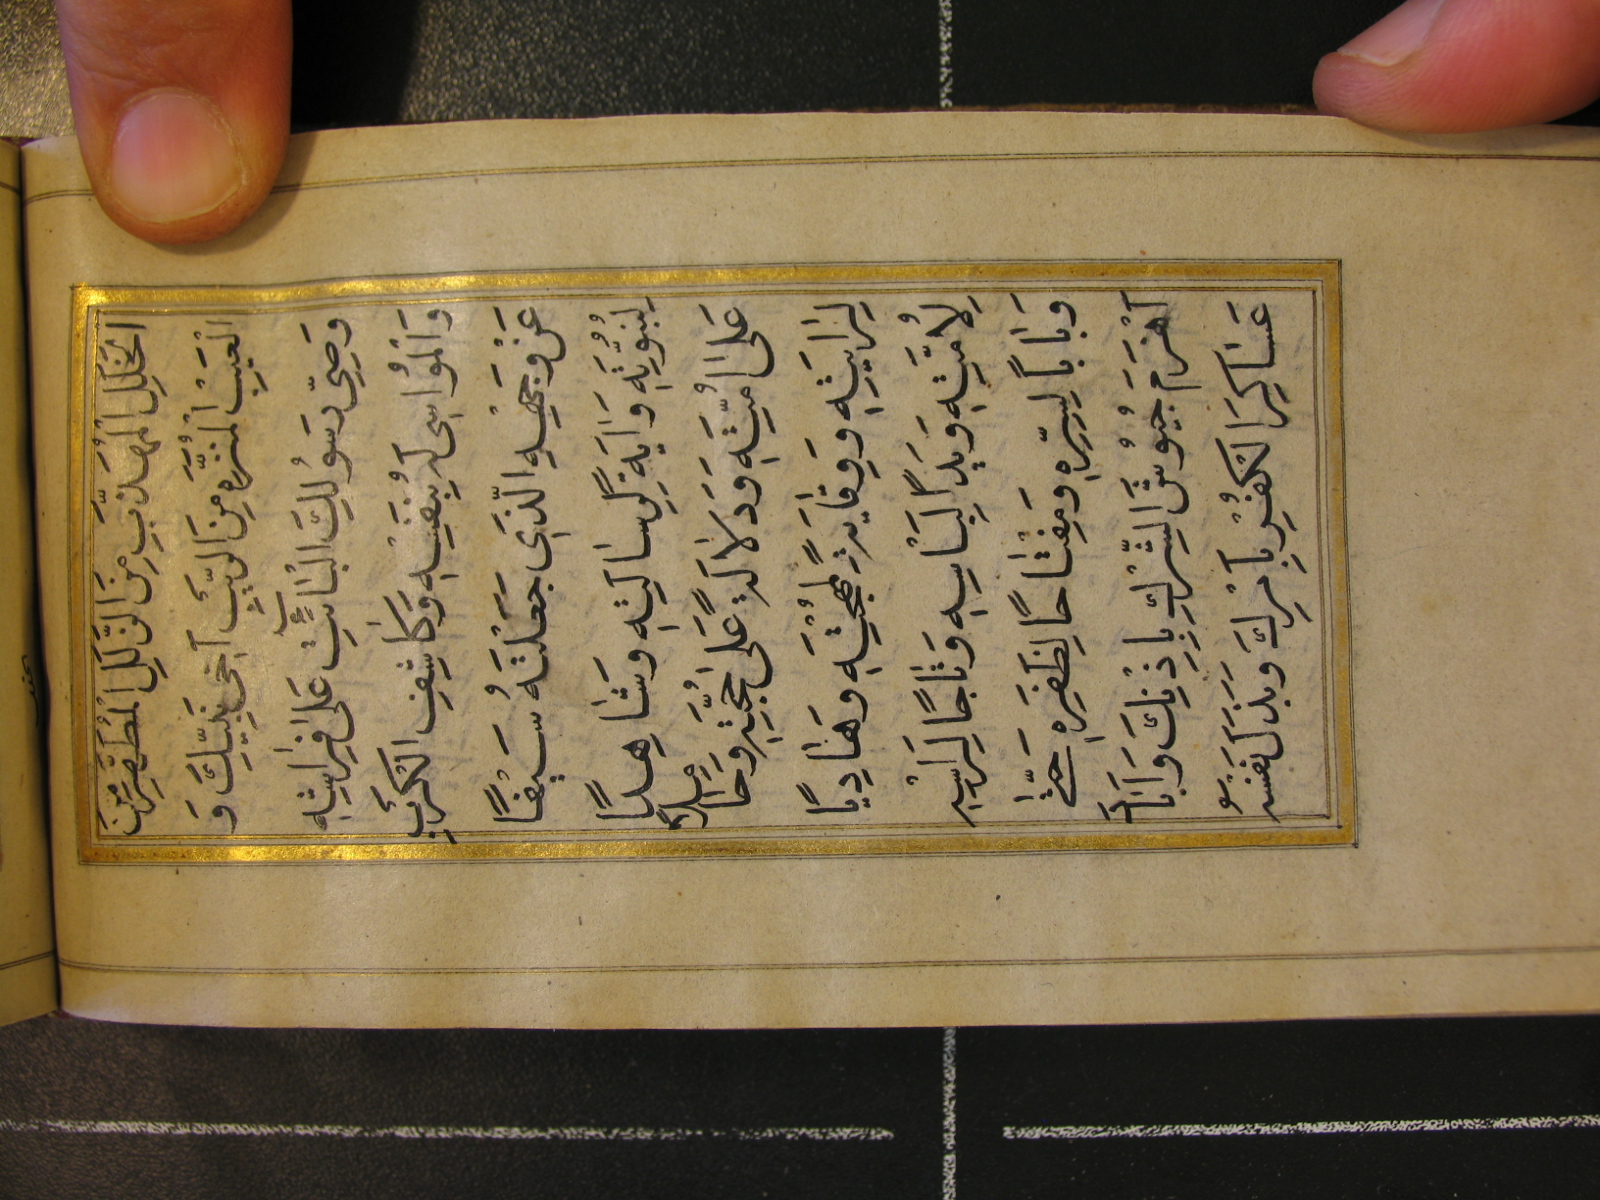 الْخَلَلِ الْمُهَذَّبِ مِنَ الزَّلَلِ الْمُطَهَّرِ مِنَ
الْعَيْبِ الْمُنَزَّهِ مِنَ الرَّيْبِ اَخِي نَبِيِّكَ وَ
وَصِيِّ رَسُولِكَ الْبَائِتِ عَلٰى فِرَاشِهِ
وَالْمُوَاسِي لَهُ بِنَفْسِهِ وَكَاشِفِ الْكَرْبِ
عَنْ وَجْهِهِ الَّذِي جَعَلْتَهُ سَيْفًا
لِنُبُوَّتِهِ وَايَةً لِرِسَالَتِهِ وَشَاهِدًا
عَلٰى اُمَّتِهِ وَدَلَالَةً عَلٰى حُجَّتِهِ وَحَامِلًا
لِرَايَتِهِ وَوِقَايَةً لِمُهْجَتِهِ وَهَادِيًا
لِاُمَّتِهِ وَيَدًا لِبَاْسِهِ وَتَاجًا لِرَاْسِهِ
وَبَابًا لِسِرِّهِ وَمِفْتَاحًا لِظَفَرِهِ حَتّٰى
اَهْزَمَ جُيُوشَ الشِّرْكِ بِاِذْنِكَ وَاَبَادَ
عَسَاكِرَ الْكُفْرِ بِاَمْرِكَ وَبَذَلَ نَفْسَهُ